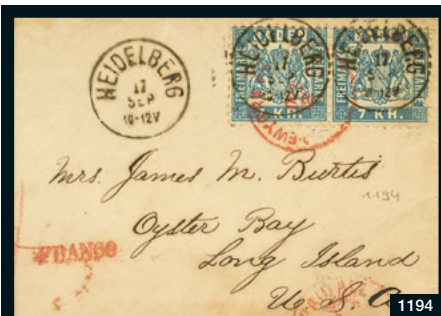 HEIDELBERG
17
SEP
10-12V
HEIDELBERG
17
HEIDELBERG
17
FREIMARKE
7 K.R.
7 K.R.
Mrs. James M. Burtis
1194
Oyster Bay
FRANCO
Long Island
U. S. A
1194